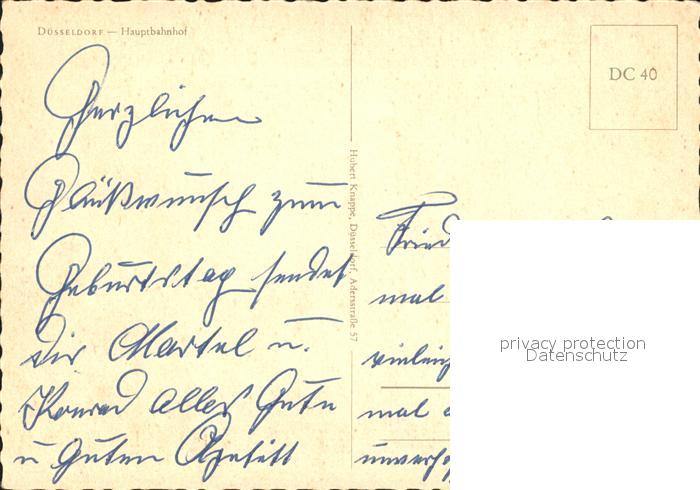 DÜSSELDORF — Hauptbahnhof
DC 40
Herzlichen
Glückwunsch zum
Geburtstag sendet
Dir Martel u.
Konrad alles Gute
u guten Apetitt
Hubert Knappe, Düsseldorf, Adersstraße 57
Fried
mal
mal
unverho
privacy protection
Datenschutz